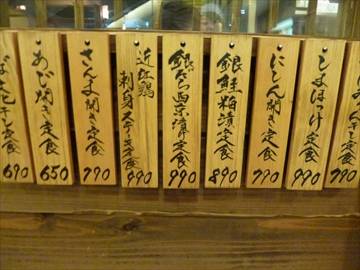 定食
790
しまほっけ定食
790
にしん開き定食
790
銀鮭粕漬定食
890
銀だら西京漬け定食
990
近江鶏
刺身ステーキ定食
990
さんま開き定食
770
あじ開き定食
650
定食
690